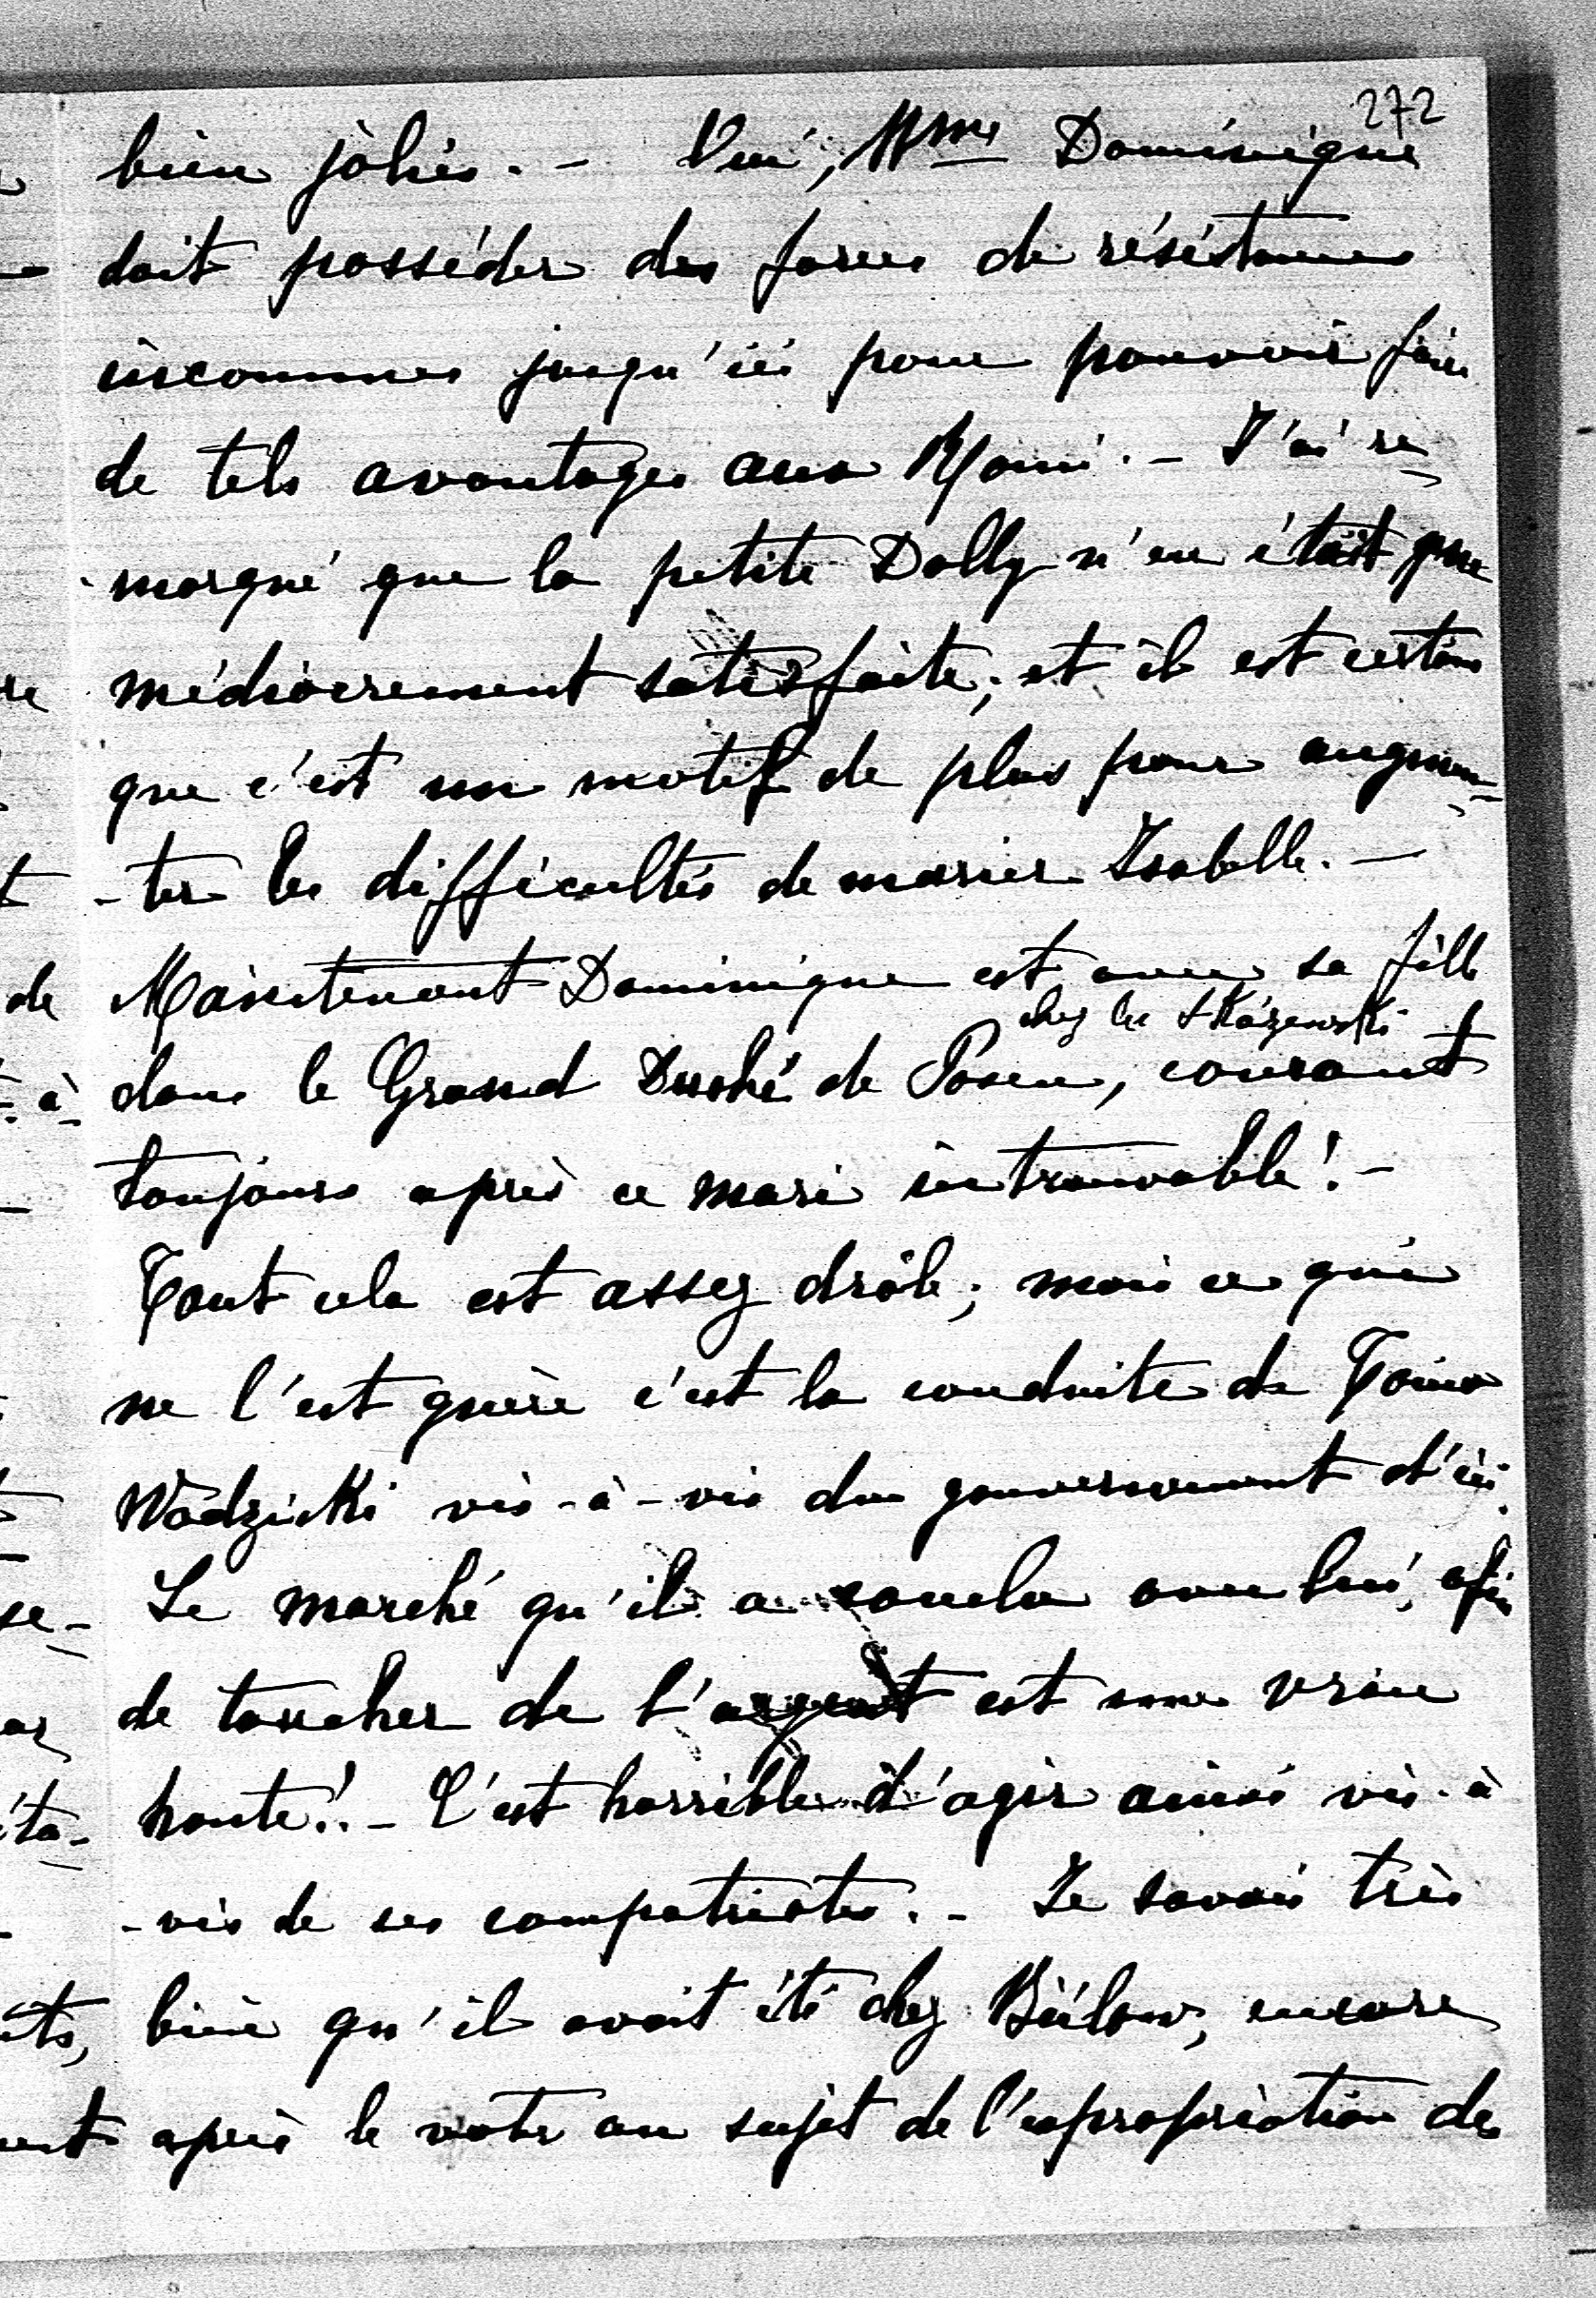 272
bien jolies. - Oui, Mme Dominique
doit posséder des forces de résistance
inconnues jusqu'ici pour pouvoir faire
de tels avantages aux . - J'ai re-
marqué que la petite Dolly n'en était que
médiocrement satisfaite; et il est certain
que c'est un motif de plus pour augmen-
-ter les difficultés de marier Isabelle. -
Maintenant Dominique est avec sa fille
chez les Skórzewski
dans le Grand Duché de Posen, courant
toujours après ce mari introuvable! -
Tout cela est assez drôle; mais ce qui
ne l'est guère c'est la conduite de
Wodzicki vis-à-vis du gouvernement d'ici.
Le marché qu'il a conclu avec lui, afin
de toucher de l'argent est une vraie
honte!. - C'est horrible d'agir ainsi vis-à
-vis de ses compatriotes. - Je savais très
bien qu'il avait été chez Bülow, encore
après le vote au sujet de l'expropriation des